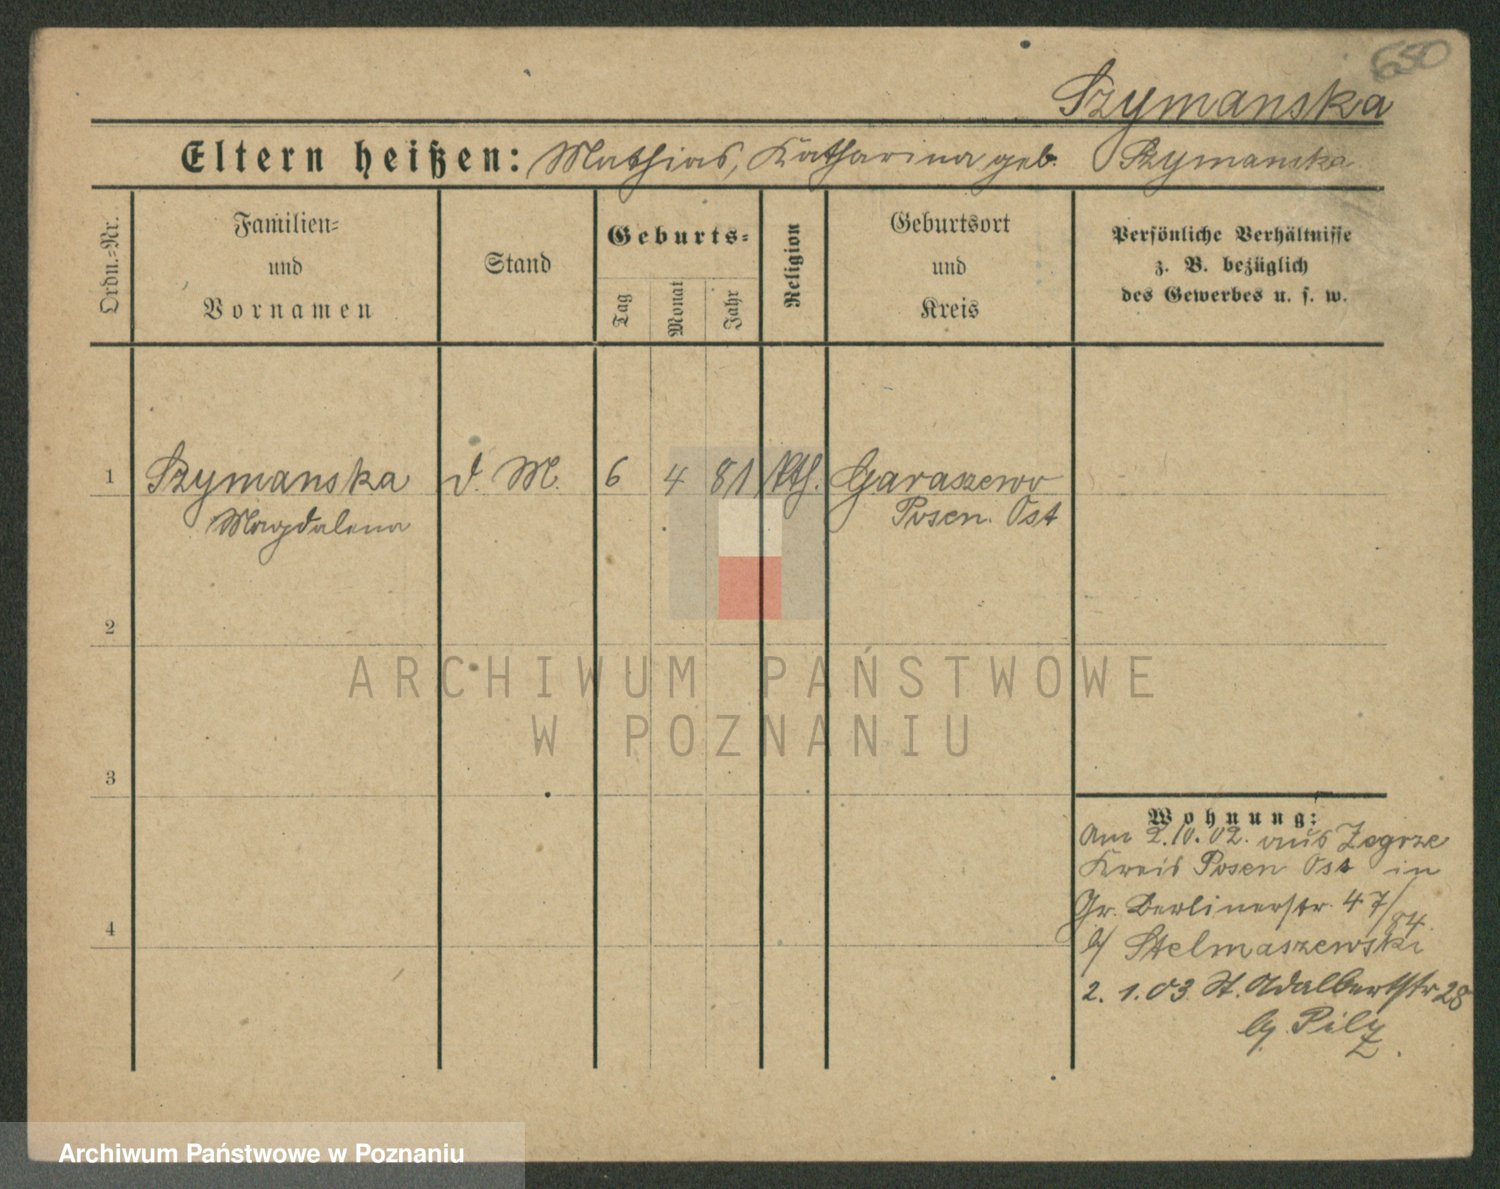 650
Szymanska
Eltern heißen: Mathias, Katharina geb. Szymanska
Ordn.-Nr.
Familien-
und
Vornamen
Stand
Geburts-
Tag
Monat
Jahr
Religion
Geburtsort
und
Kreis
Persönliche Verhältnisse
z. B. bezüglich
des Gewerbes u. s. w.
1 Szymanska d. M. 6 4 81 kth. Garaszewo
Magdalena Posen Ost
2
3
4
Wohnung:
Am 2.10.02. aus Zegrze
Kreis Posen Ost in
Gr. Berlinerstr. 47/84.
b/ Stelmaszewski
2. 1. 03 St. Adalbertstr 28
by Pilz
ARCHIWUM PAŃSTWOWE
W POZNANIU
Archiwum Państwowe w Poznaniu